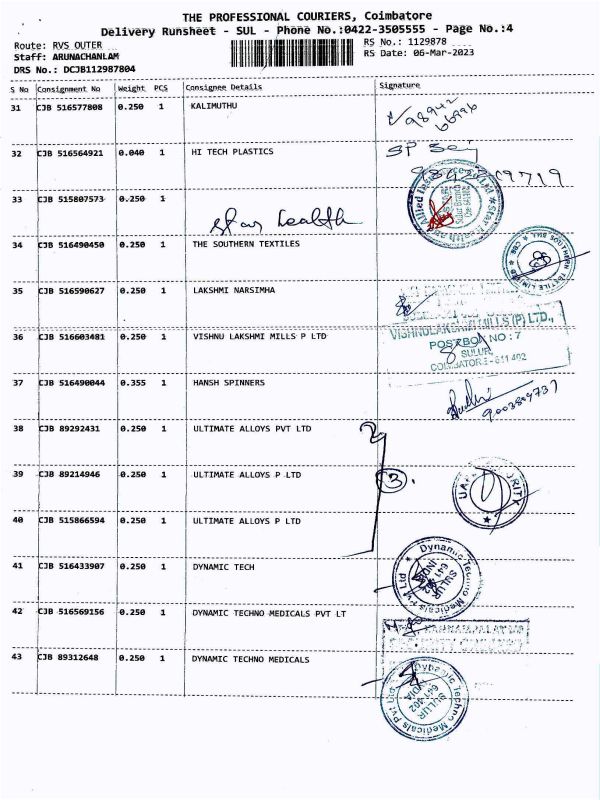 THE PROFESSIONAL COURIERS, Coimbatore
Delivery Runsheet - SUL - Phone No.:0422-3505555 - Page No.:4
Route: RVS OUTER
RS No.: 1129878
Staff: ARUNACHANLAM
RS Date: 06-Mar-2023
DRS No.: DCJB112987804
S No Consignment No Weight PCS Consignee Details Signature
31 CJB 516577808 0.250 1 KALIMUTHU
98942
66996
32 CJB 516564921 0.040 1 HI TECH PLASTICS
33 CJB 515807573 0.250 1
Star health
34 CJB 516490450 0.250 1 THE SOUTHERN TEXTILES
35 CJB 516590627 0.250 1 LAKSHMI NARSIMHA
36 CJB 516603481 0.250 1 VISHNU LAKSHMI MILLS P LTD
VISHNULAKSHMI MILLS (P) LTD.,
POSTBOX NO : 7
SULUR,
COIMBATORE - 641 402
37 CJB 516490044 0.355 1 HANSH SPINNERS
9003804737
38 CJB 89292431 0.250 1 ULTIMATE ALLOYS PVT LTD
39 CJB 89214946 0.250 1 ULTIMATE ALLOYS P LTD
3
40 CJB 515866594 0.250 1 ULTIMATE ALLOYS P LTD
41 CJB 516433907 0.250 1 DYNAMIC TECH
Dynamic Techno Medicals Pvt Ltd
SULUR
641 402
INDIA
42 CJB 516569156 0.250 1 DYNAMIC TECHNO MEDICALS PVT LT
43 CJB 89312648 0.250 1 DYNAMIC TECHNO MEDICALS
Dynamic Techno Medicals Pvt Ltd
SULUR
641 402
INDIA